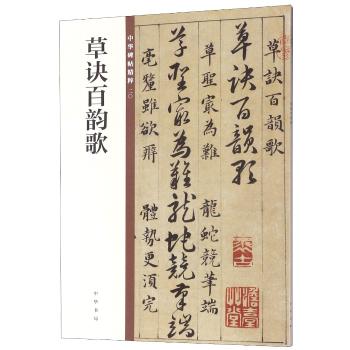 草诀百韵歌
中华碑帖精粹
二〇
中华书局
草訣百韻歌
草訣百韻歌
草聖家為難 龍蛇競筆端
草聖寂為難龍蛇競筆端
毫釐雖欲辨 體勢更須完